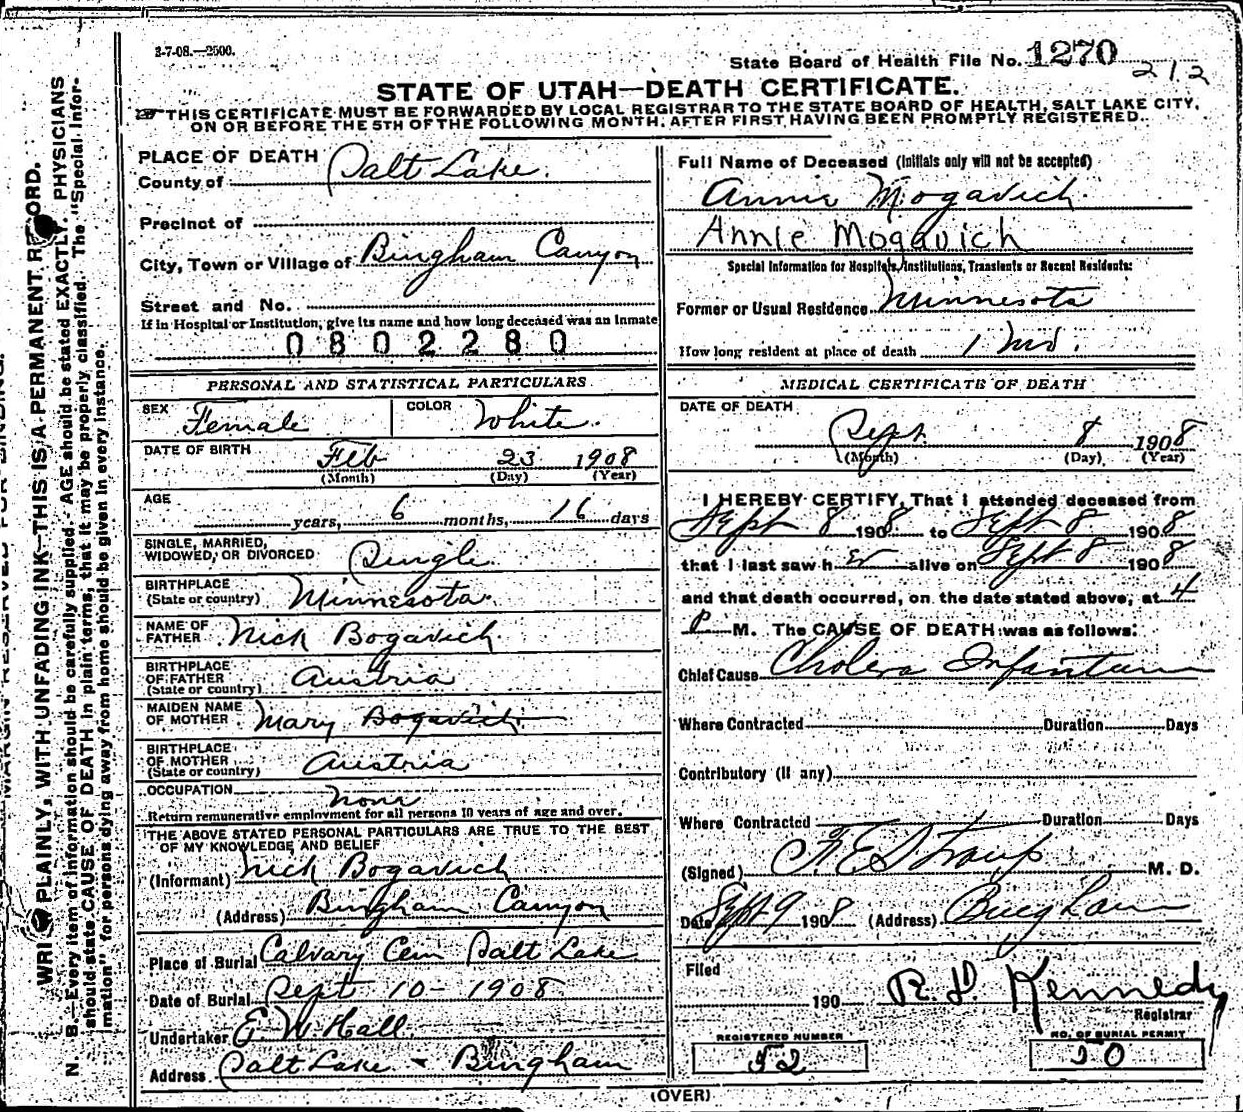 3-7-08.—2500.
State Board of Health File No. 1270
212
STATE OF UTAH—DEATH CERTIFICATE.
THIS CERTIFICATE MUST BE FORWARDED BY LOCAL REGISTRAR TO THE STATE BOARD OF HEALTH, SALT LAKE CITY,
ON OR BEFORE THE 5TH OF THE FOLLOWING MONTH, AFTER FIRST HAVING BEEN PROMPTLY REGISTERED.
MARGIN RESERVED FOR BINDING.
WRITE PLAINLY, WITH UNFADING INK—THIS IS A PERMANENT RECORD.
N. B.—Every item of information should be carefully supplied. AGE should be stated EXACTLY. PHYSICIANS
should state CAUSE OF DEATH in plain terms, that it may be properly classified. The "Special Infor-
mation" for persons dying away from home should be given in every instance.
PLACE OF DEATH
County of Salt Lake.
Precinct of
City, Town or Village of Bingham Canyon
Street and No.
If in Hospital or Institution, give its name and how long deceased was an inmate
0802280
PERSONAL AND STATISTICAL PARTICULARS
SEX Female COLOR White.
DATE OF BIRTH Feb 23 1908
(Month) (Day) (Year)
AGE years, 6 months, 16 days
SINGLE, MARRIED,
WIDOWED, OR DIVORCED Single
BIRTHPLACE
(State or country) Minnesota.
NAME OF
FATHER Nick Bogavich.
BIRTHPLACE
OF FATHER
(State or country) Austria
MAIDEN NAME
OF MOTHER Mary Bogavich
BIRTHPLACE
OF MOTHER
(State or country) Austria
OCCUPATION none
Return remunerative employment for all persons 10 years of age and over.
THE ABOVE STATED PERSONAL PARTICULARS ARE TRUE TO THE BEST
OF MY KNOWLEDGE AND BELIEF
(Informant) Nick Bogavich
(Address) Bingham Canyon
Place of Burial Calvary Cem Salt Lake
Date of Burial Sept 10 - 1908
Undertaker E. W. Hall
Address Salt Lake & Bingham
Full Name of Deceased (Initials only will not be accepted)
Annie Mogavich
Annie Mogavich
Special Information for Hospitals, Institutions, Transients or Recent Residents:
Former or Usual Residence Minnesota
How long resident at place of death 1 mo.
MEDICAL CERTIFICATE OF DEATH
DATE OF DEATH
Sept. 8 1908
(Month) (Day) (Year)
I HEREBY CERTIFY, That I attended deceased from
Sept 8 1908 to Sept 8 1908
that I last saw her alive on Sept 8 1908
and that death occurred, on the date stated above, at 4
P M. The CAUSE OF DEATH was as follows:
Chief Cause Cholera Infantum
Where Contracted Duration Days
Contributory (If any)
Where Contracted Duration Days
(Signed) F. E. Straup M. D.
Date Sept 9 1908 (Address) Bingham
Filed
190 R. H. Kennedy
Registrar
REGISTERED NUMBER
52
NO. OF BURIAL PERMIT
50
(OVER)